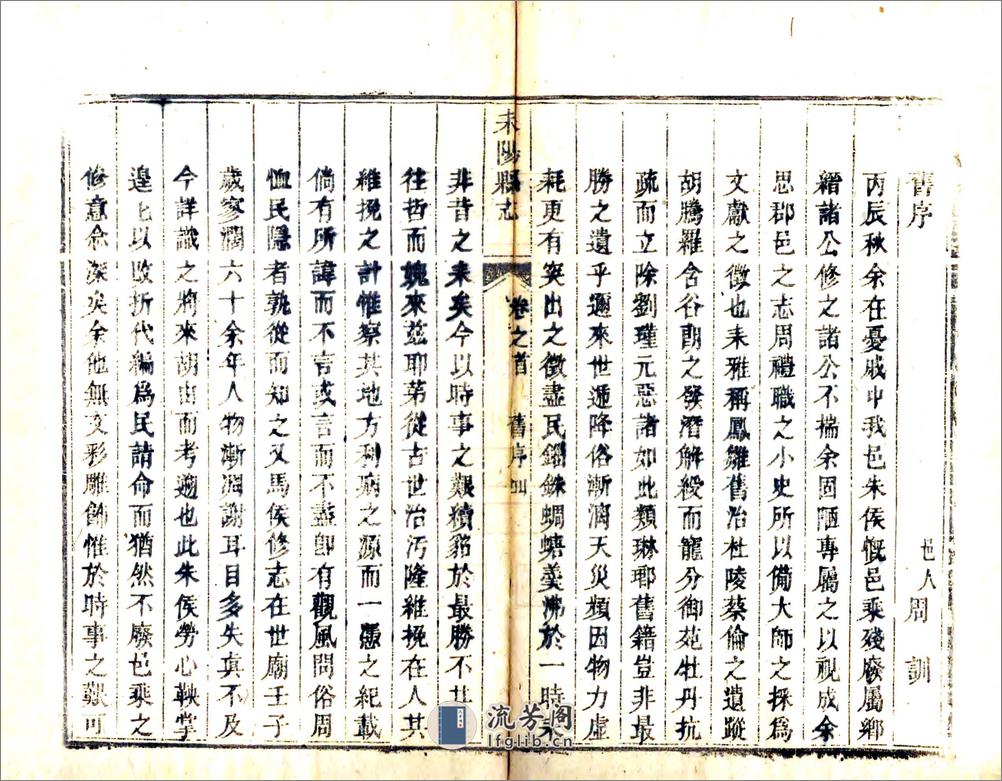 舊序
邑人周　訓
丙辰秋余在憂戚中我邑朱侯慨邑乘殘廢屬鄉
縉諸公修之諸公不揣余固陋專屬之以視成余
思郡邑之志周禮職之小史所以備大師之採爲
文獻之徵也耒雅稱鳳雛舊治杜陵蔡倫之遺蹤
胡騰羅含谷朗之發潛解綬而寵分御苑牡丹抗
疏而立除劉瑾元惡諸如此類琳瑯舊籍豈非最
勝之遺乎邇來世遞降俗漸漓天災頻因物力虛
耗更有突出之徵盡民錙銖蜩螗羹沸於一時耒
耒陽縣志
卷之首
舊序
四
非昔之耒矣今以時事之艱續貂於最勝不其
往哲而媿來茲耶第從古世治汚隆維挽在人其
維挽之計惟察其地方利病之源而一憑之紀載
倘有所諱而不言或言而不盡卽有觀風問俗周
恤民隱者孰從而知之又馬侯修志在世廟壬子
歲寥濶六十余年人物漸凋謝耳目多失真不及
今詳識之將來胡由而考遡也此朱侯勞心鞅掌
遑上以敗折代編爲民請命而猶然不廢邑乘之
修意念深矣余他無文彩雕飾惟於時事之艱可
流芳阁
lfglib.cn